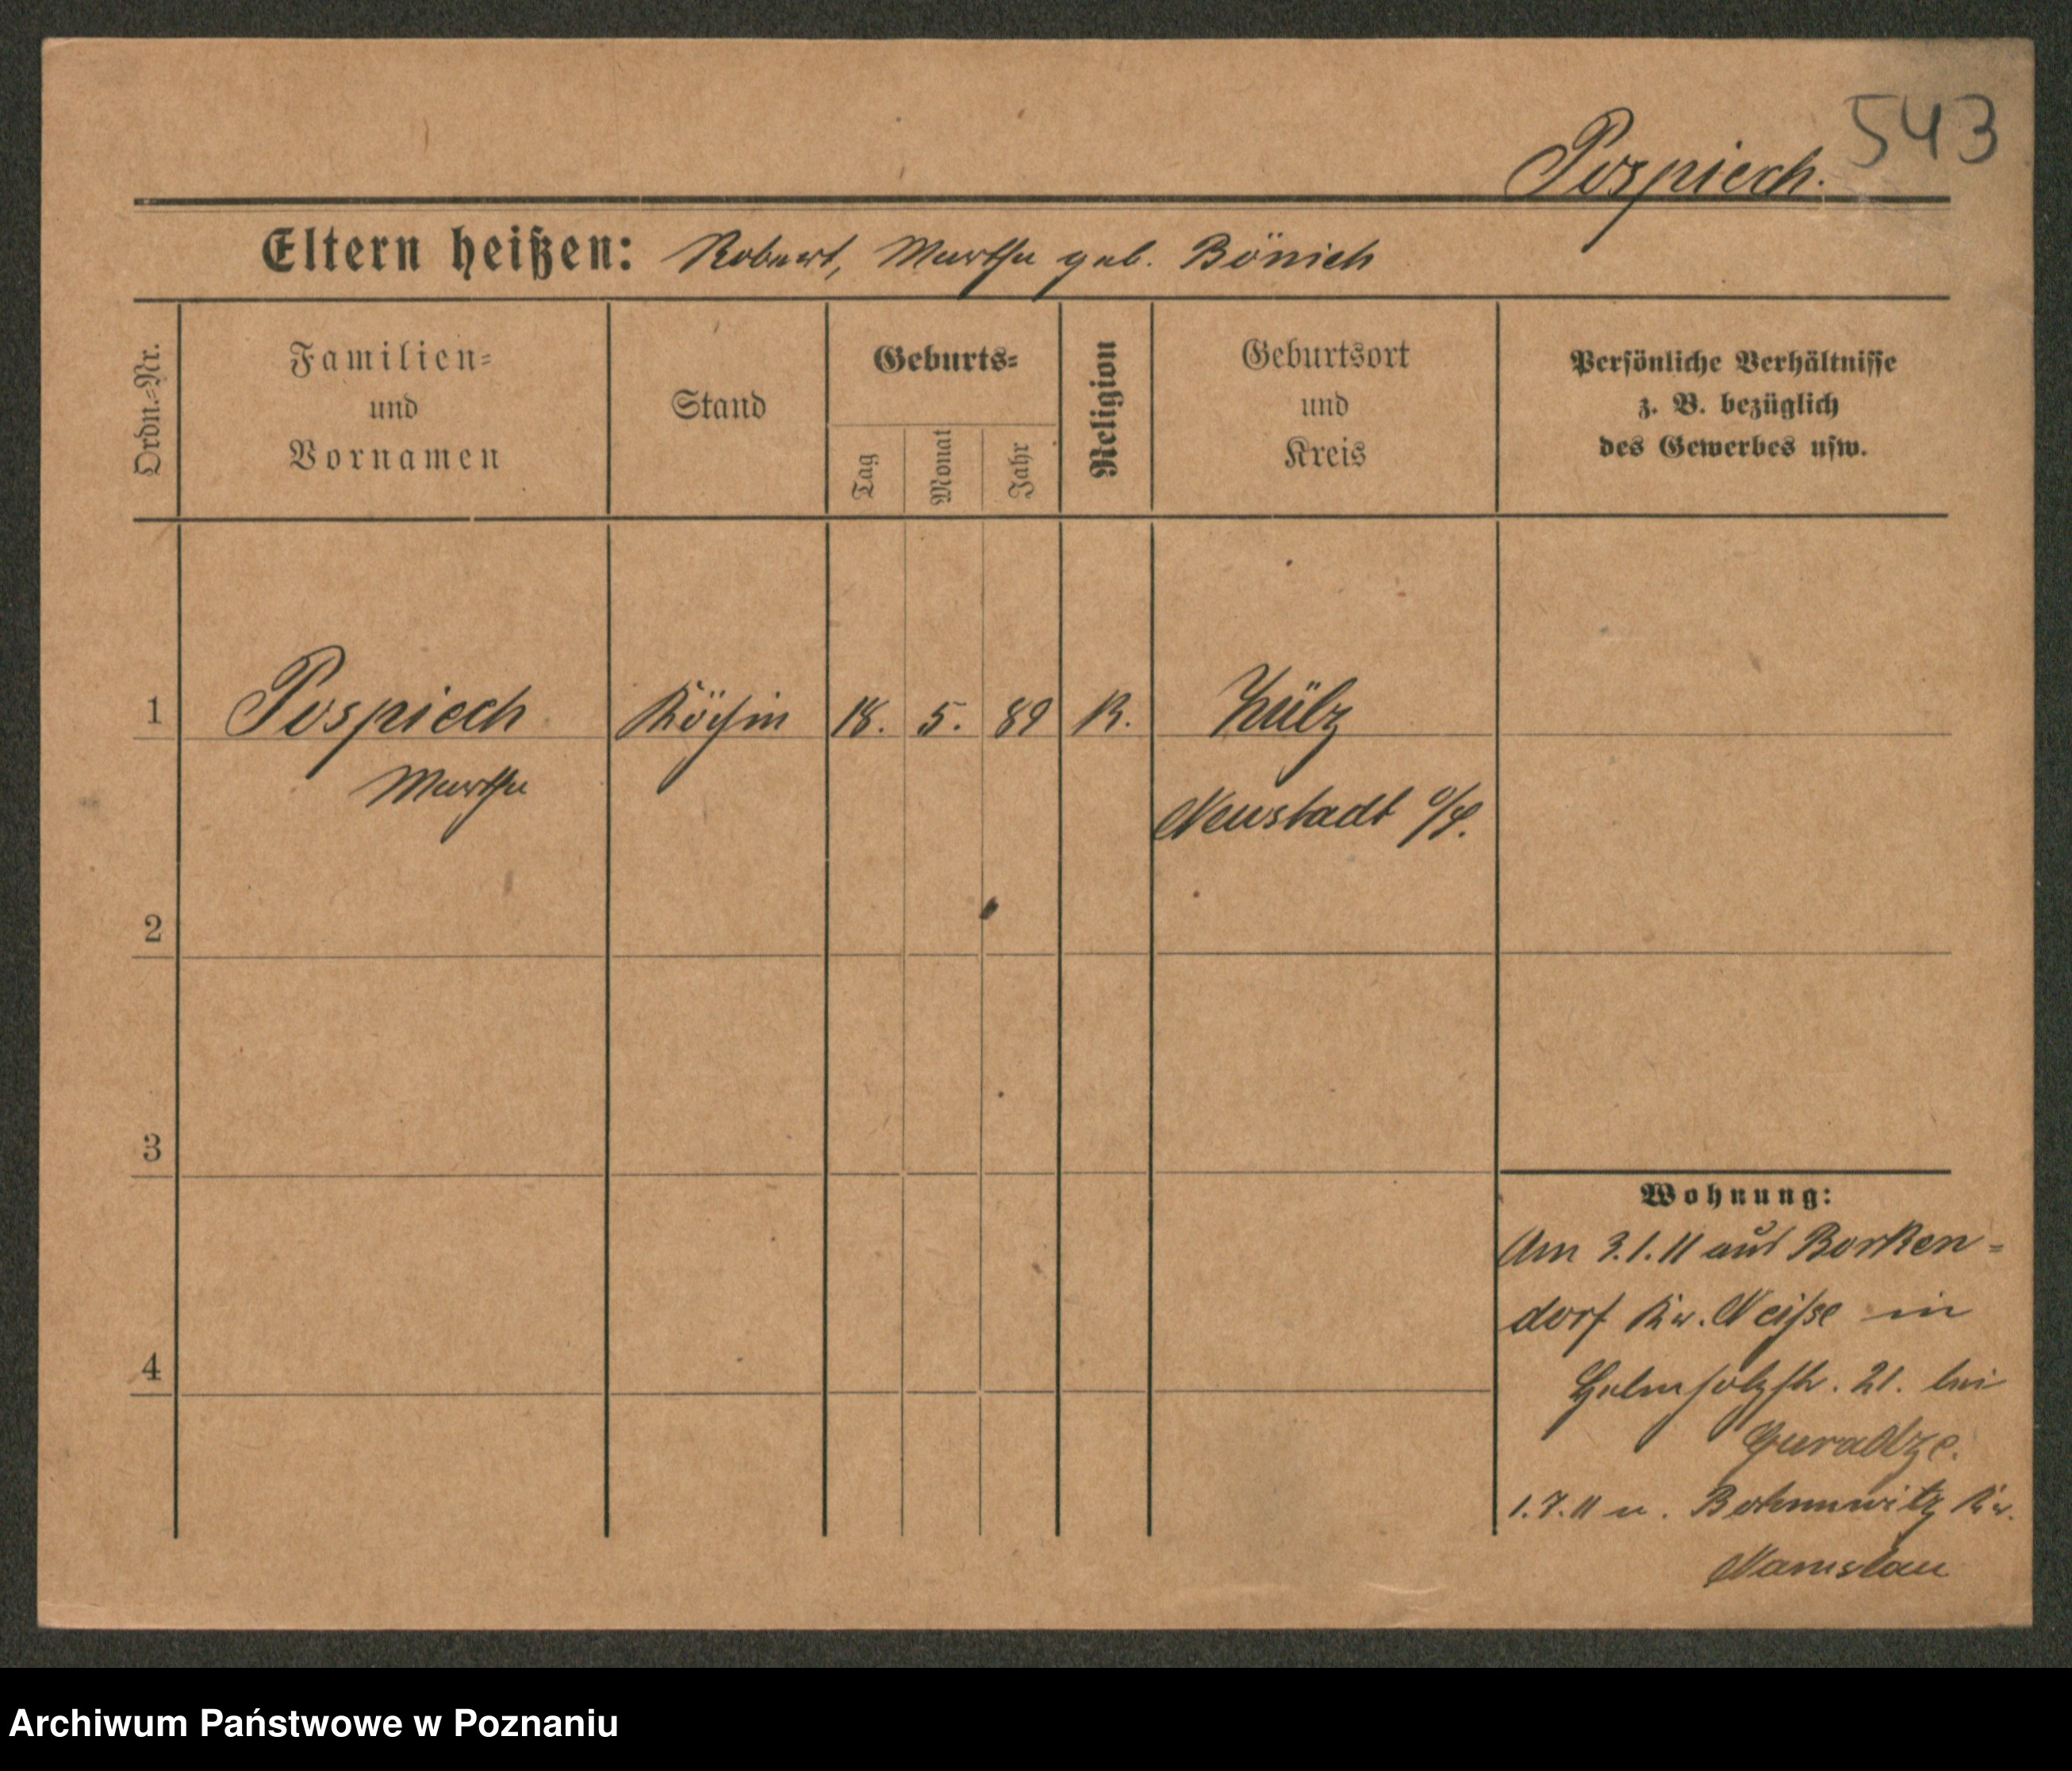 543
Pospiech.
Eltern heißen: Robert, Martha geb. Bönisch
Ordn.=Nr.
Familien=
und
Vornamen
Stand
Geburts=
Tag
Monat
Jahr
Religion
Geburtsort
und
Kreis
Persönliche Verhältnisse
z. B. bezüglich
des Gewerbes usw.
1 Pospiech Köchin 18. 5. 89 K. Zülz
Martha Neustadt O/S.
2
3
4
Wohnung:
Am 3.1.11 aus Borken-
dorf Kr. Neisse in
21. bei
Guradze.
1.7.11 n. Kr.
Namslau
Archiwum Państwowe w Poznaniu